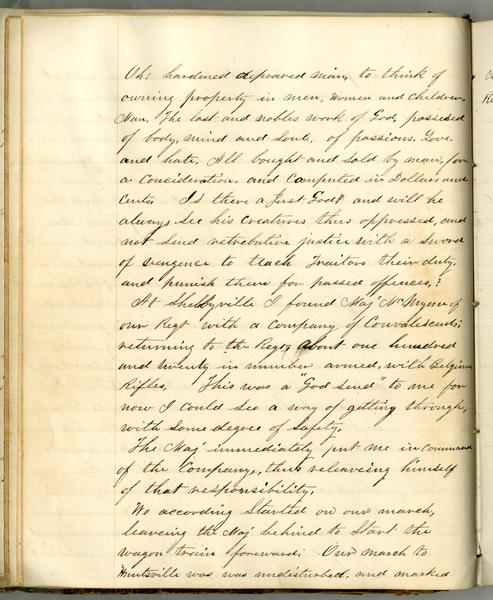 Oh! hardened depraved man, to think of
owning property in men, women and children,
Man, The last and nobles work of God, possesed
of body, mind and Soul, of passions, Love
and hate, All bought and sold by man, for
a Concideration, and Computed in Dollars and
Cents. Is there a Just God? and will he
always See his Creatures thus oppressed, and
not Send retributive justice with a Sword
of vengence to teach Traitors their duty,
and punish them for passed offences,?
At Shelbyville I found Maj
our Regt with a Company of Convalescents,
returning to the Regt, About one hundred
and twenty in number armed, with Belgium
Rifles, This was a "God send" to me for
now I could See a way of getting through,
with Some degree of Safety,
The Maj immediately put me in Command
of the Company, thus releaveing himself
of that responsibility,
We according Started on our march,
leaveing the Maj behind to Start the
wagon train foreward; Our march to
Huntsville was was undisturbed, and marked